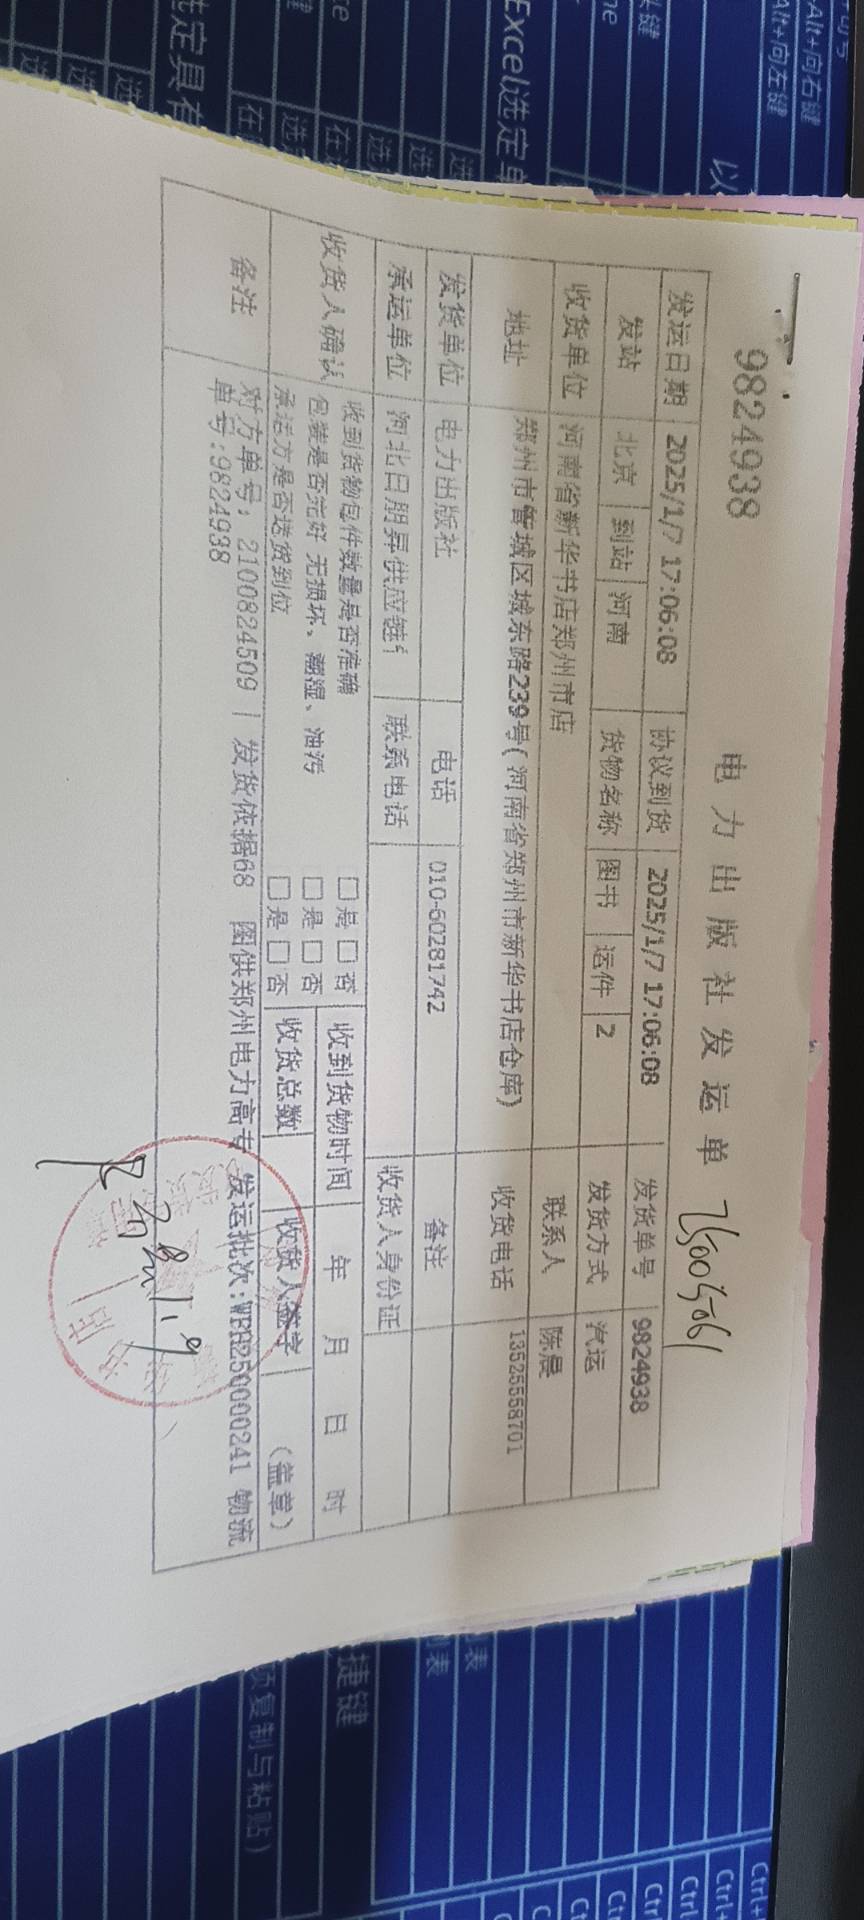 9824938
电力出版社发运单
25005061
发运日期 2025/1/7 17:06:08 协议到货 2025/1/7 17:06:08 发货单号 9824938
发站 北京 到站 河南 货物名称 图书 运件 2 发货方式 汽运
收货单位 河南省新华书店郑州市店 联系人 陈晨
地址 郑州市管城区城东路239号(河南省郑州市新华书店仓库) 收货电话 13525558701
发货单位 电力出版社 电话 010-60281742 备注
承运单位 河北日朋昇供应链 联系电话 收货人身份证
收货人确认 收到货物包件数量是否准确 □是□否 收到货物时间 年 月 日 时
包装是否完好 无损坏、潮湿、油污 □是□否
承运方是否送货到位 □是□否 收货总数 收货人签字 (盖章)
备注 对方单号:2100824509 | 发货依据68 图供郑州电力高专 发运批次:WFH250000241 物流
单号:9824938
1.9
Excel选定单
选定具有
捷键
项复制与粘贴)
Alt+向右键
Alt+向左键